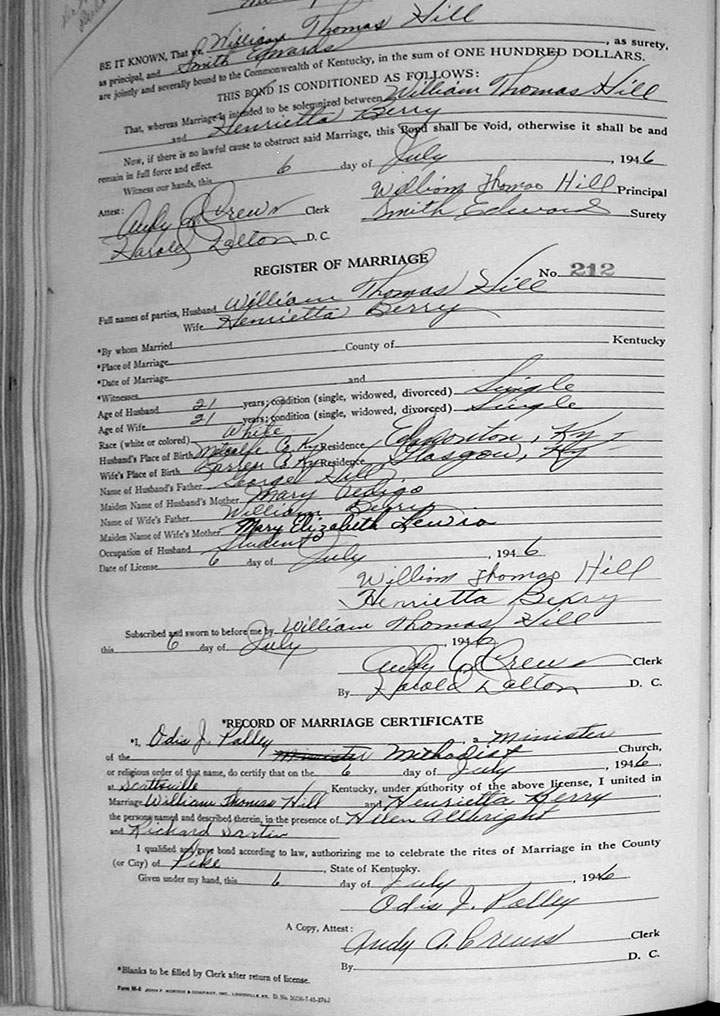 William Thomas Hill
BE IT KNOWN, That we, William Thomas Hill
as principal, and Smith Edwards, as surety,
are jointly and severally bound to the Commonwealth of Kentucky, in the sum of ONE HUNDRED DOLLARS.
THIS BOND IS CONDITIONED AS FOLLOWS:
That, whereas Marriage is intended to be solemnized between William Thomas Hill
and Henrietta Berry
Now, if there is no lawful cause to obstruct said Marriage, this Bond shall be void, otherwise it shall be and
remain in full force and effect.
Witness our hands, this 6 day of July, 1946
William Thomas Hill Principal
Attest: Andy A. Crews Clerk
Smith Edwards Surety
Harold Dalton D. C.
REGISTER OF MARRIAGE
No. 212
Full names of parties, Husband William Thomas Hill
Wife Henrietta Berry
*By whom Married
*Place of Marriage County of Kentucky
*Date of Marriage
*Witnesses and
Age of Husband 21 years; condition (single, widowed, divorced) Single
Age of Wife 21 years; condition (single, widowed, divorced) Single
Race (white or colored) White
Husband's Place of Birth Metcalfe Co. Ky Residence Edmonton, Ky
Wife's Place of Birth Barren Co. Ky Residence Glasgow, Ky
Name of Husband's Father George Hill
Maiden Name of Husband's Mother Mary Pedigo
Name of Wife's Father William Berry
Maiden Name of Wife's Mother Mary Elizabeth Lewis
Occupation of Husband Student
Date of License 6 day of July, 1946
William Thomas Hill
Henrietta Berry
Subscribed and sworn to before me by William Thomas Hill
this 6 day of July, 1946
Andy A. Crews Clerk
By Harold Dalton D. C.
*RECORD OF MARRIAGE CERTIFICATE
*I, Odis J. Polley a Minister
of the Minister Methodist Church,
or religious order of that name, do certify that on the 6 day of July, 1946
at Scottsville Kentucky, under authority of the above license, I united in
Marriage William Thomas Hill and Henrietta Berry
the persons named and described therein, in the presence of Helen Allbright
and Richard Sartin
I qualified and gave bond according to law, authorizing me to celebrate the rites of Marriage in the County
(or City) of Pike, State of Kentucky.
Given under my hand, this 6 day of July, 1946
Odis J. Polley
A Copy, Attest: Andy A. Crews Clerk
By D. C.
*Blanks to be filled by Clerk after return of license.